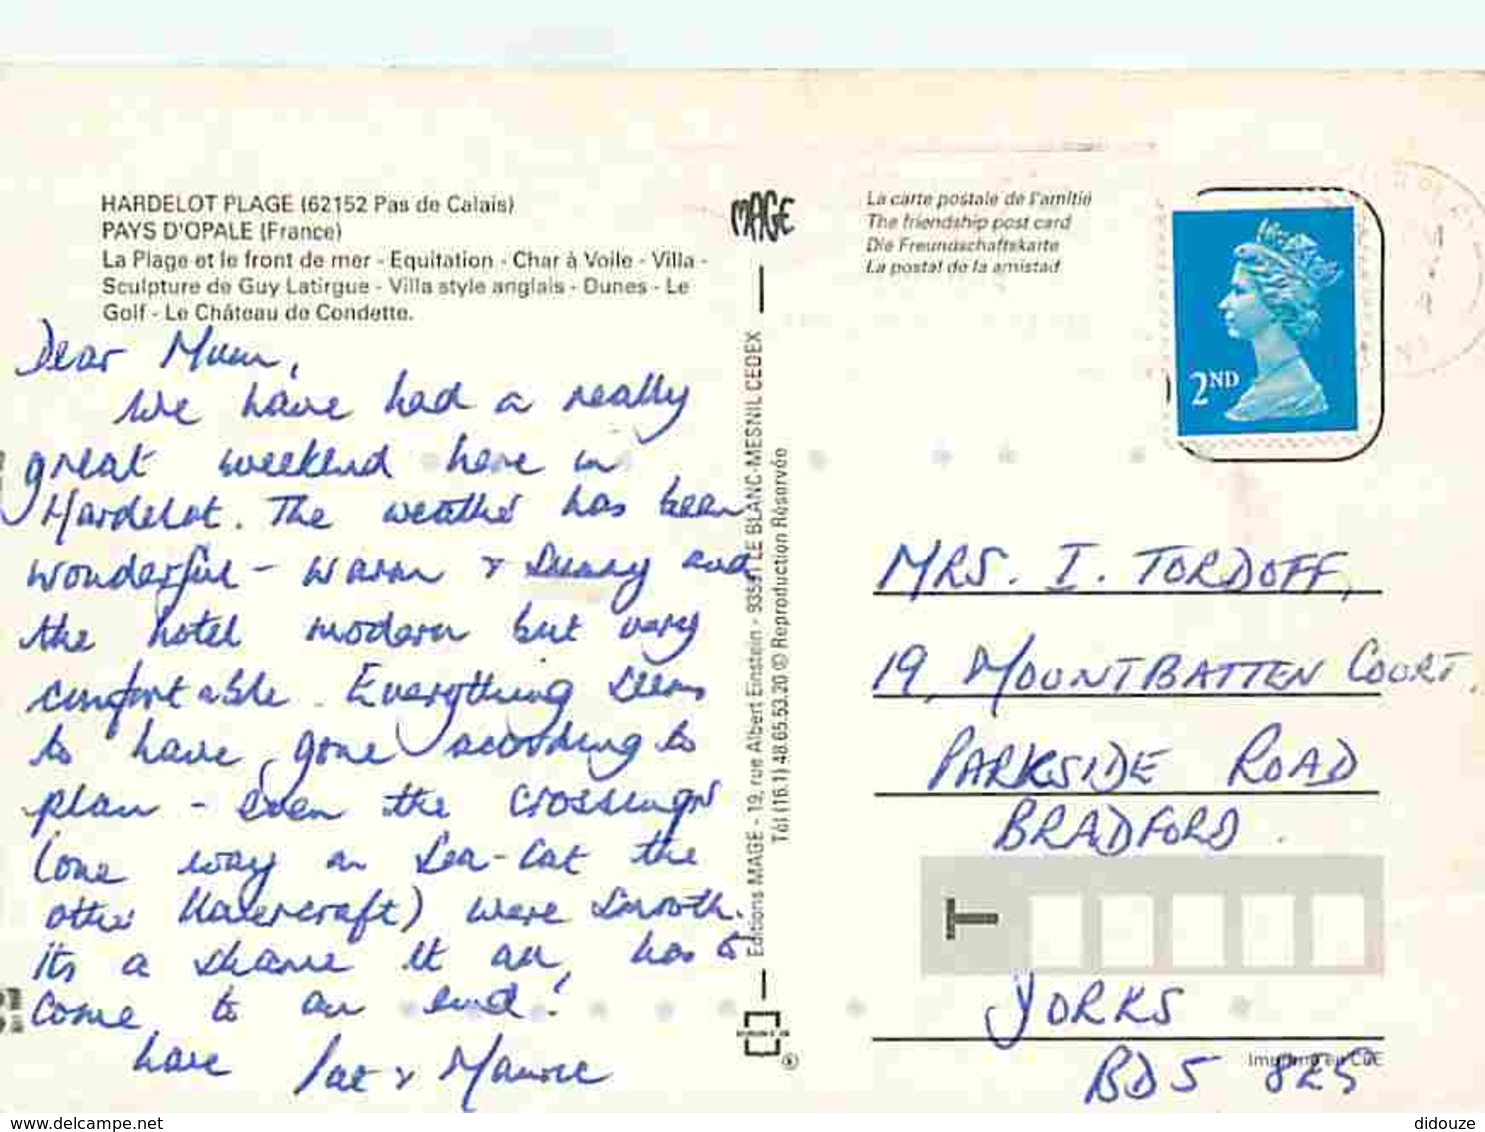 HARDELOT PLAGE (62152 Pas de Calais)
PAYS D'OPALE (France)
La Plage et le front de mer - Equitation - Char à Voile - Villa -
Sculpture de Guy Latirgue - Villa style anglais - Dunes - Le
Golf - Le Château de Condette.
Dear Mum,
We have had a really
great weekend here in
Hardelot. The weather has been
wonderful - warm & sunny and
the hotel modern but very
comfortable. Everything seems
to have gone according to
plan - even the crossings
(one way on Sea-Cat the
other Hovercraft) were smooth.
its a shame it all has to
come to an end!
Love Pat & Maurice
MAGE
Editions MAGE - 19, rue Albert Einstein - 93591 LE BLANC-MESNIL CEDEX
Tél (16.1) 48.65.53.20 © Reproduction Réservée
La carte postale de l'amitié
The friendship post card
Die Freundschaftskarte
La postal de la amistad
2ND
MRS. I. TORDOFF,
19, MOUNTBATTEN COURT,
PARKSIDE ROAD
BRADFORD.
T
YORKS
Imprimé en CEE
BD5 8ES
www.delcampe.net
didouze